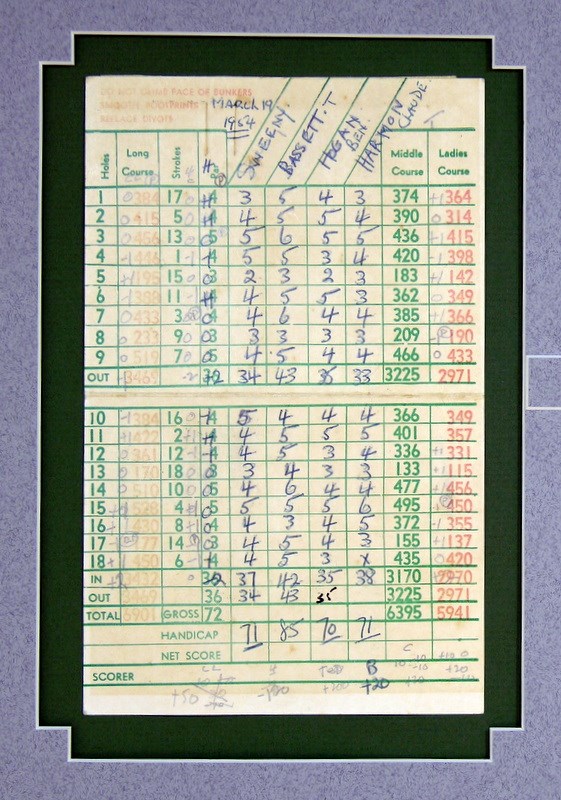 DO NOT CLIMB FACE OF BUNKERS
SMOOTH FOOTPRINTS
REPLACE DIVOTS
MARCH 19
1954
SWEENY BASSETT. T HOGAN BEN. HARMON CLAUDE
Holes Long Course Strokes Par Middle Course Ladies Course
1 384 17 4 3 5 4 3 374 +1 364
2 415 5 4 4 5 5 4 390 0 314
3 456 13 5 5 6 5 5 436 +1 415
4 446 1 4 5 5 3 4 420 -1 398
5 195 15 3 2 3 2 3 183 +1 142
6 388 11 4 4 5 5 3 362 0 349
7 433 3 4 4 6 4 4 385 +1 366
8 233 9 3 3 3 3 3 209 190
9 519 7 5 4 5 4 4 466 0 433
OUT 3469 34 43 35 33 3225 2971
10 384 16 4 5 4 4 4 366 349
11 422 2 4 4 5 5 5 401 357
12 361 12 4 4 5 3 4 336 +1 331
13 170 18 3 3 4 3 3 133 +1 115
14 510 10 5 4 6 4 4 477 456
15 528 4 5 5 5 5 6 495 450
16 430 8 4 4 3 4 5 372 -1 355
17 177 14 3 4 5 4 3 155 +1 137
18 450 6 4 4 5 3 x 435 0 420
IN 3432 37 42 35 38 3170 2970
OUT 3469 36 34 43 35 3225 2971
TOTAL 6901 GROSS 72 6395 5941
HANDICAP 71 85 70 71
NET SCORE
SCORER B
+20
+50